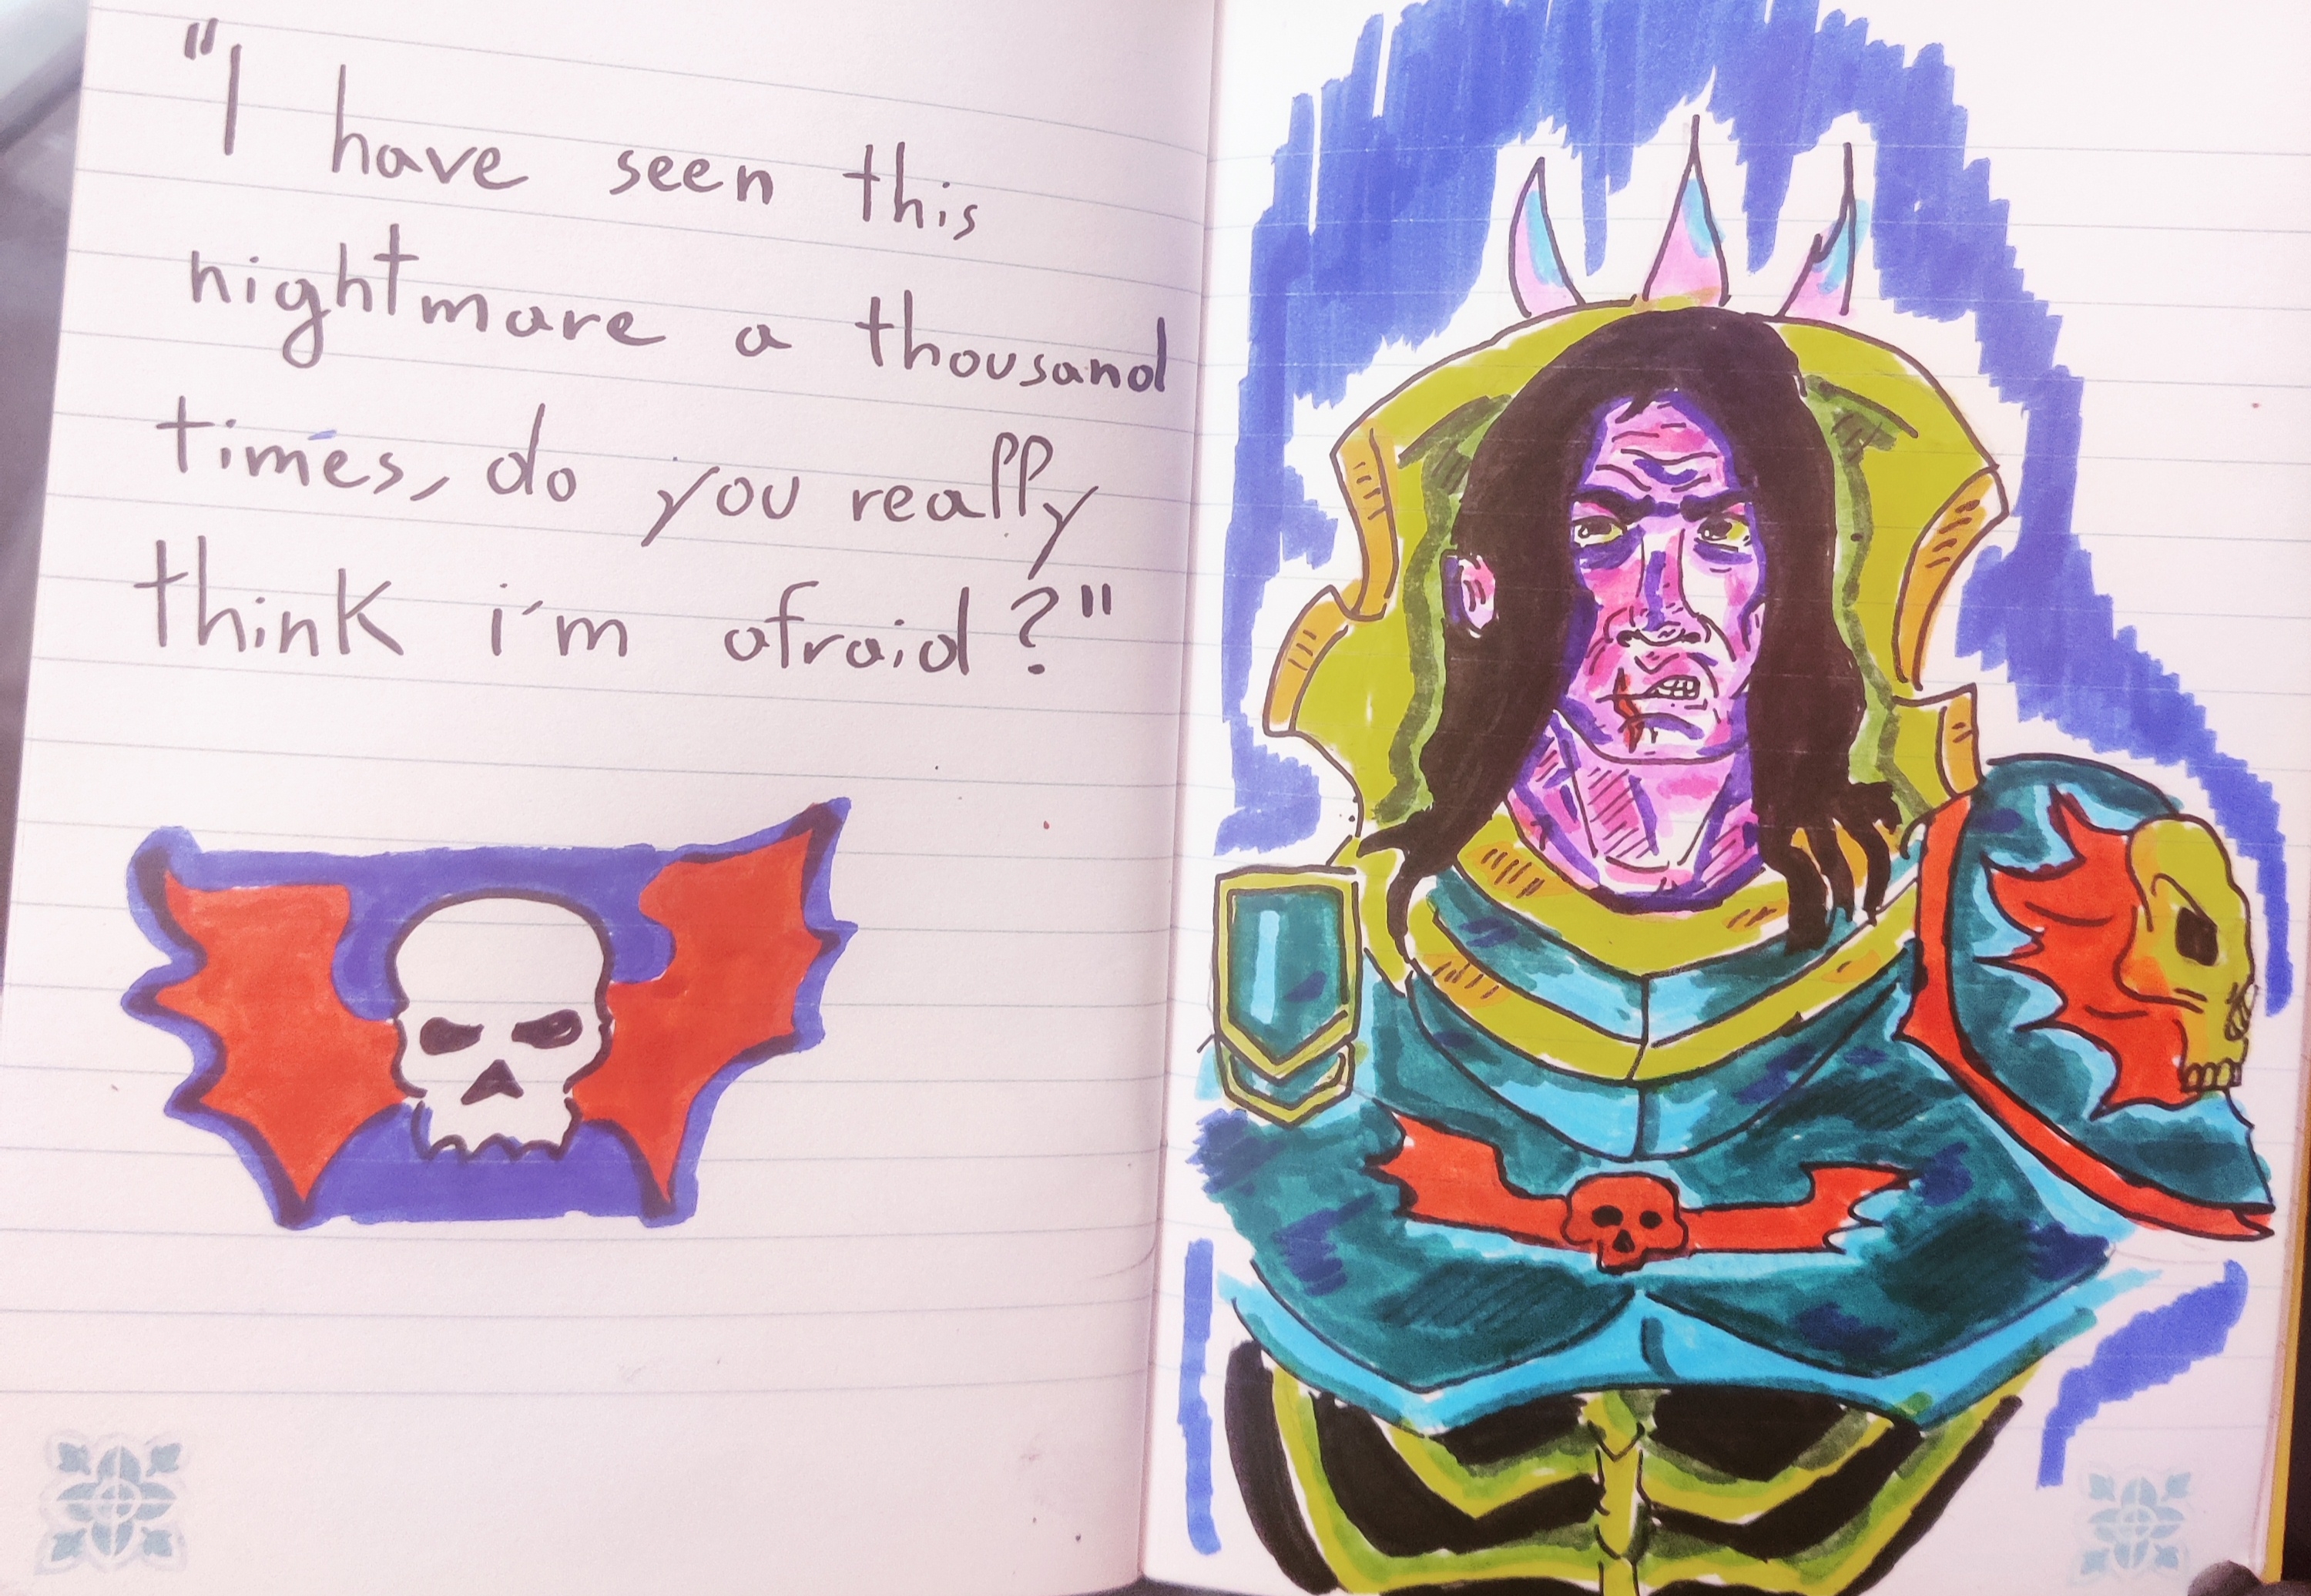 "I have seen this
nightmare a thousand
times, do you really
think i'm afraid?"